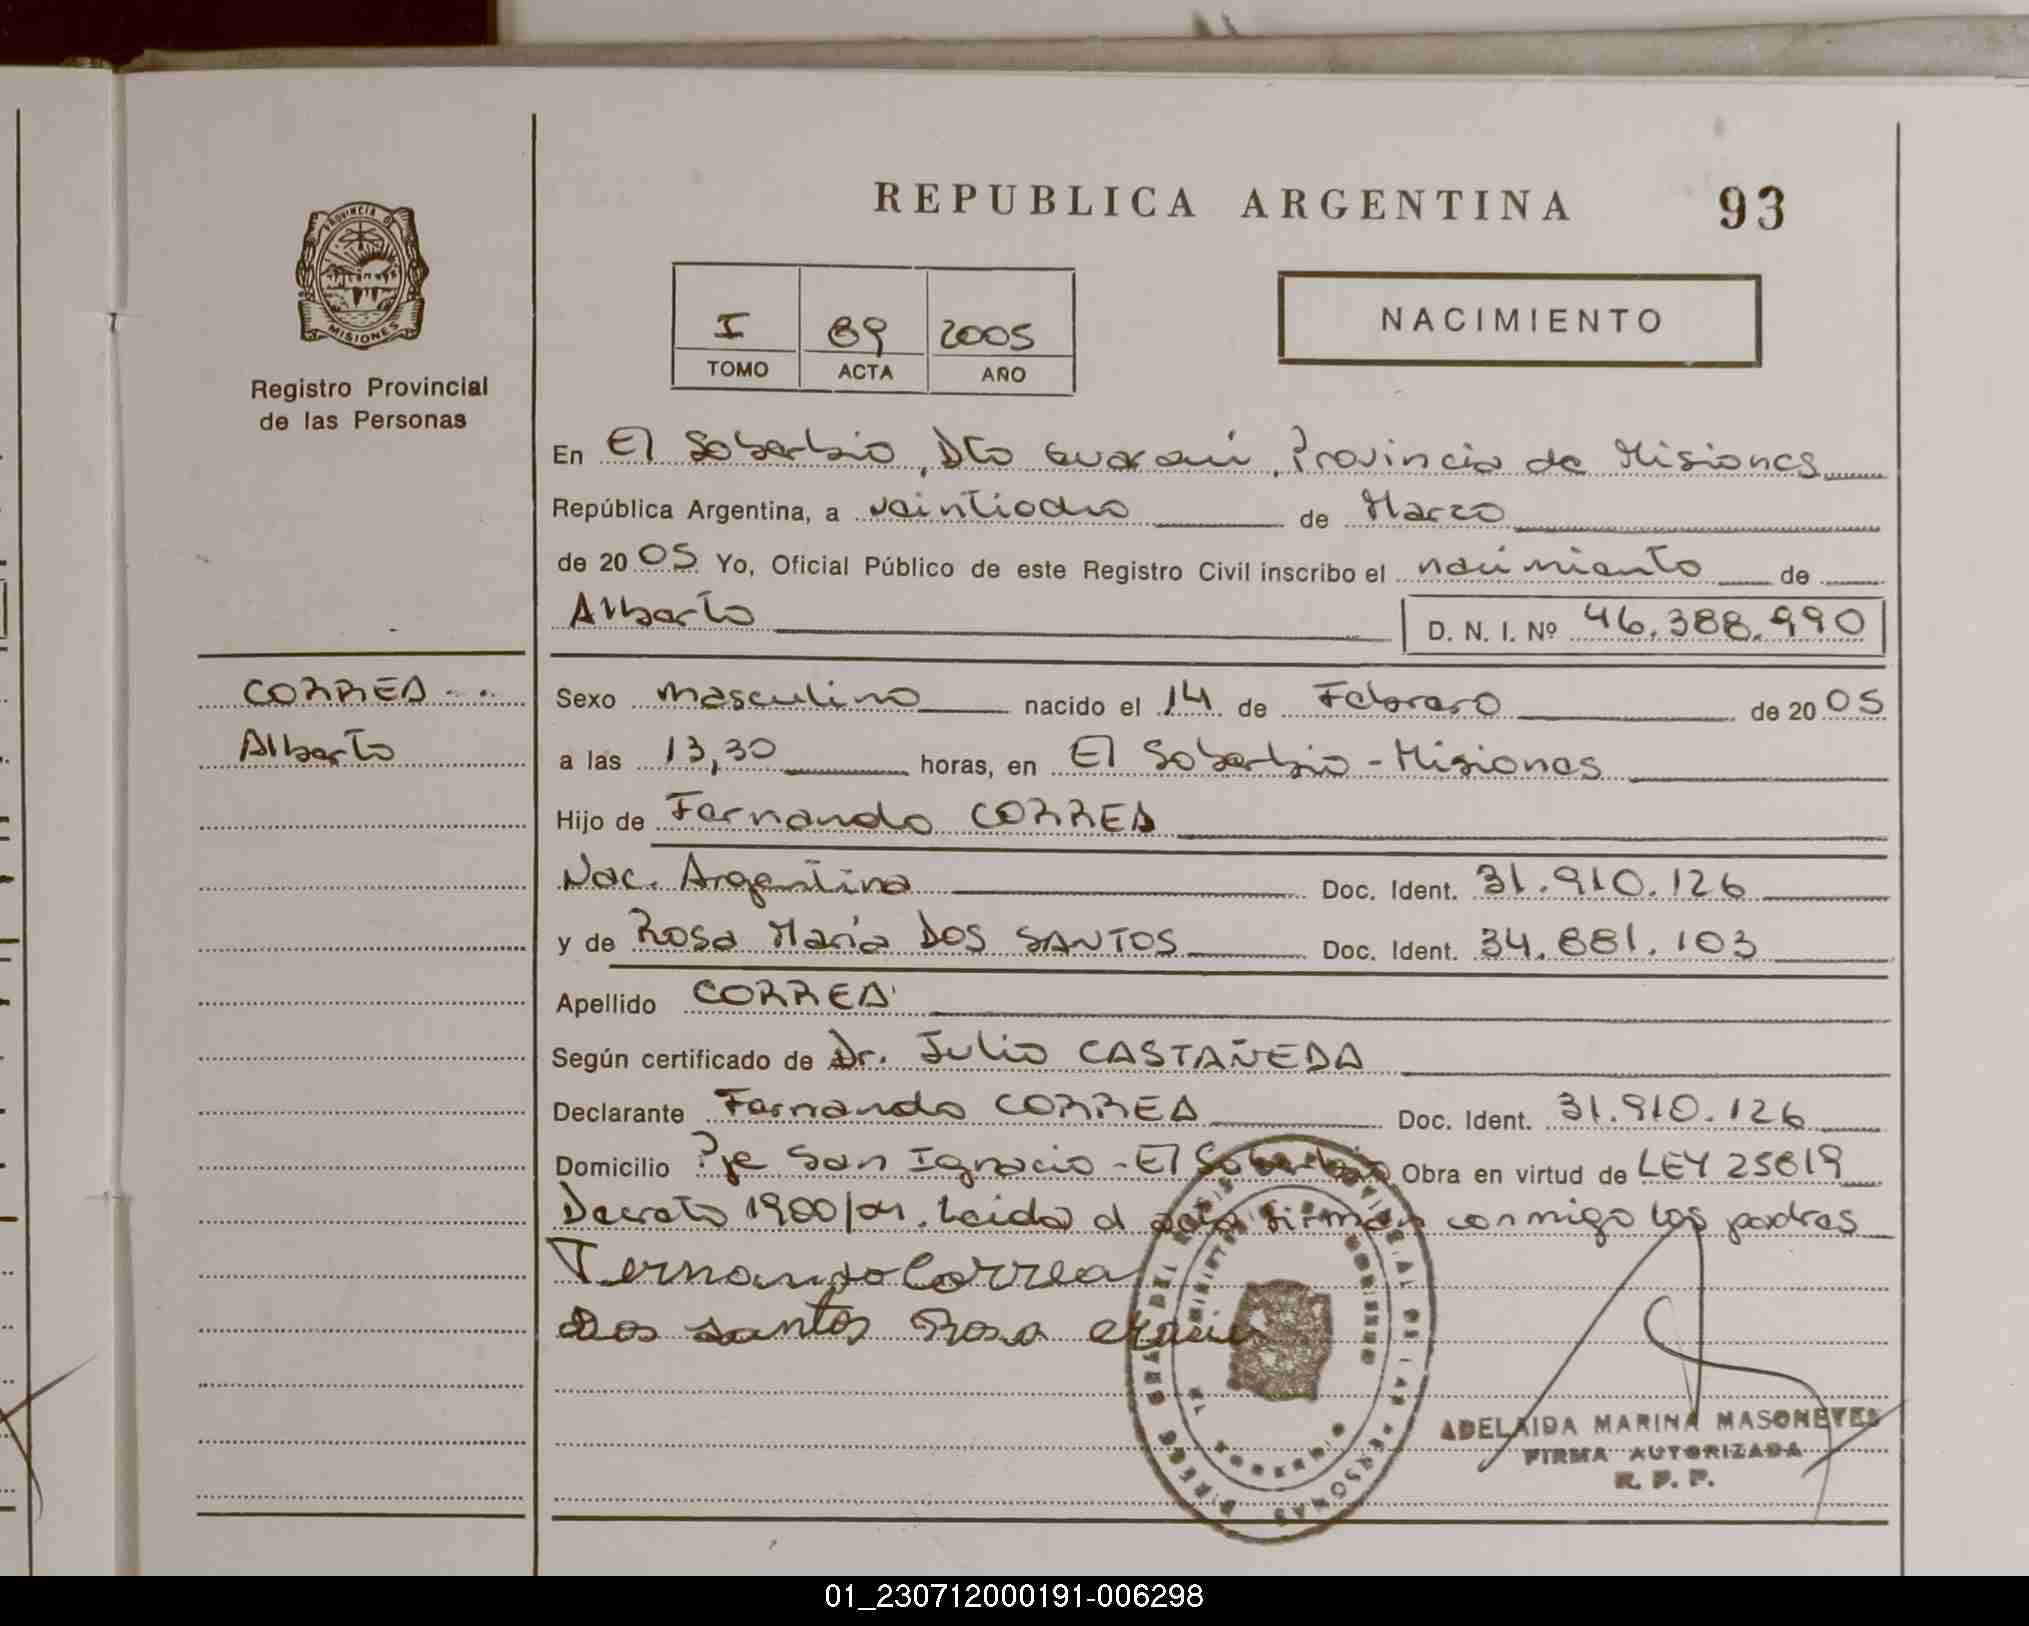 REPUBLICA ARGENTINA 93
PROVINCIA DE
MISIONES
Registro Provincial
de las Personas
I 89 2005
TOMO ACTA AÑO
NACIMIENTO
En El Soberbio, Dto Guaraní, Provincia de Misiones
República Argentina, a veintiocho de Marzo
de 2005 Yo, Oficial Público de este Registro Civil inscribo el nacimiento de
Alberto D. N. I. Nº 46.388.990
CORREA
Alberto
Sexo masculino nacido el 14 de Febrero de 2005
a las 13,30 horas, en El Soberbio - Misiones
Hijo de Fernando CORREA
Nac. Argentina Doc. Ident. 31.910.126
y de Rosa María DOS SANTOS Doc. Ident. 34.881.103
Apellido CORREA
Según certificado de Dr. Julio CASTAÑEDA
Declarante Fernando CORREA Doc. Ident. 31.910.126
Domicilio Pje San Ignacio - El Soberbio Obra en virtud de LEY 25819
Decreto 1900/04. Leida el acta firman conmigo los padres
Fernando Correa
Dos santos Rosa
ADELAIDA MARINA MASONEVES
FIRMA AUTORIZADA
R. P. P.
01_230712000191-006298